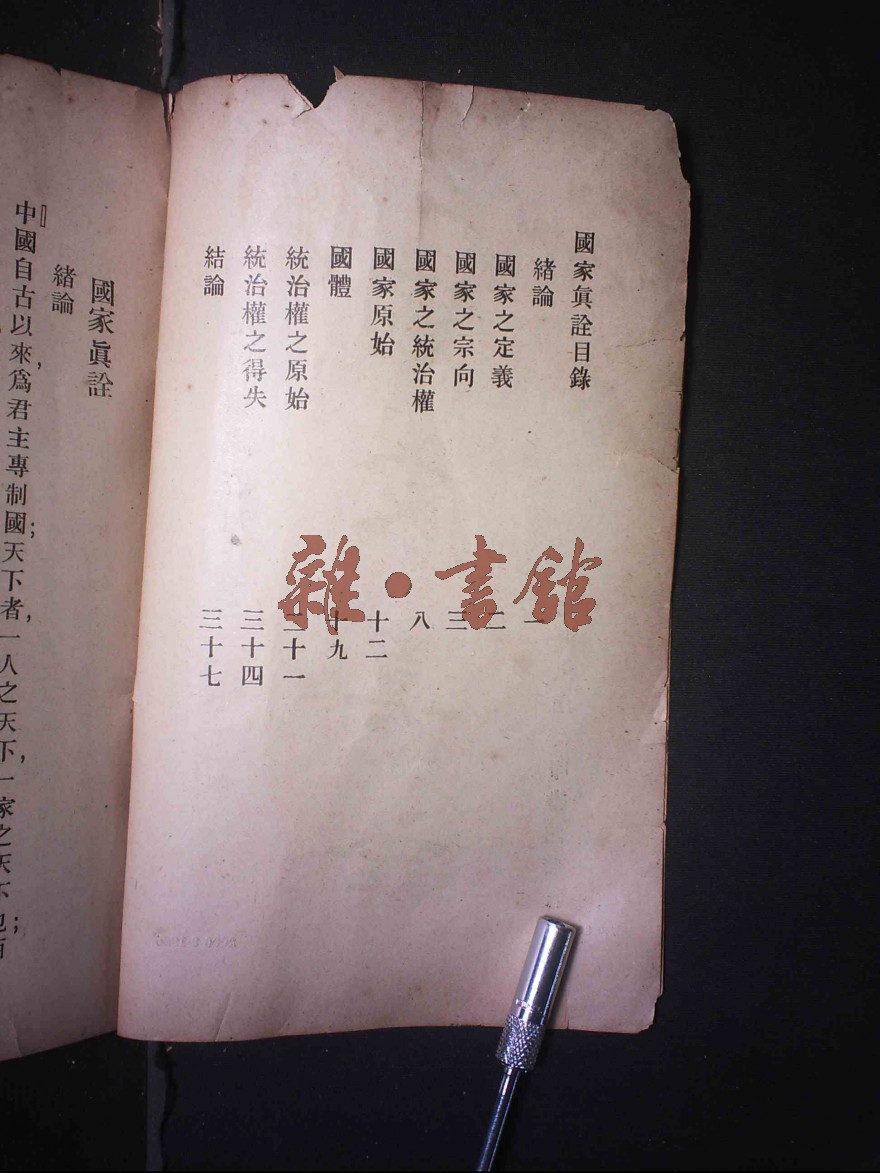 國家眞詮目錄
緒論 一
國家之定義 二
國家之宗向 三
國家之統治權 八
國家原始 十二
國體 十九
統治權之原始 二十一
統治權之得失 三十四
結論 三十七
國家眞詮
緒論
中國自古以來，爲君主專制國；天下者，一人之天下，一家之天下也；
雜·書館